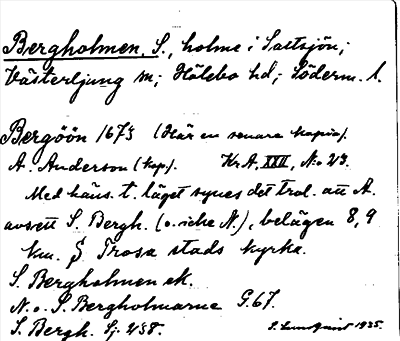 Bergholmen, S., holme i Saltsjön;
Västerljung sn; Hölebo hd; Söderm. l.
Bergöön 1673 (Här en senare kopia).
A. Anderson (kop.). KrA, XXII, No 23.
Med häns. t. läget synes det trol. att A.
avsett S. Bergh. (o. icke N.), belägen 8,9
km. S Trosa stads kyrka.
S. Bergholmen ek.
N. o. S. Bergholmarne G. 67.
S. Bergh. Sj. 238.
S. Lundquist 1935.